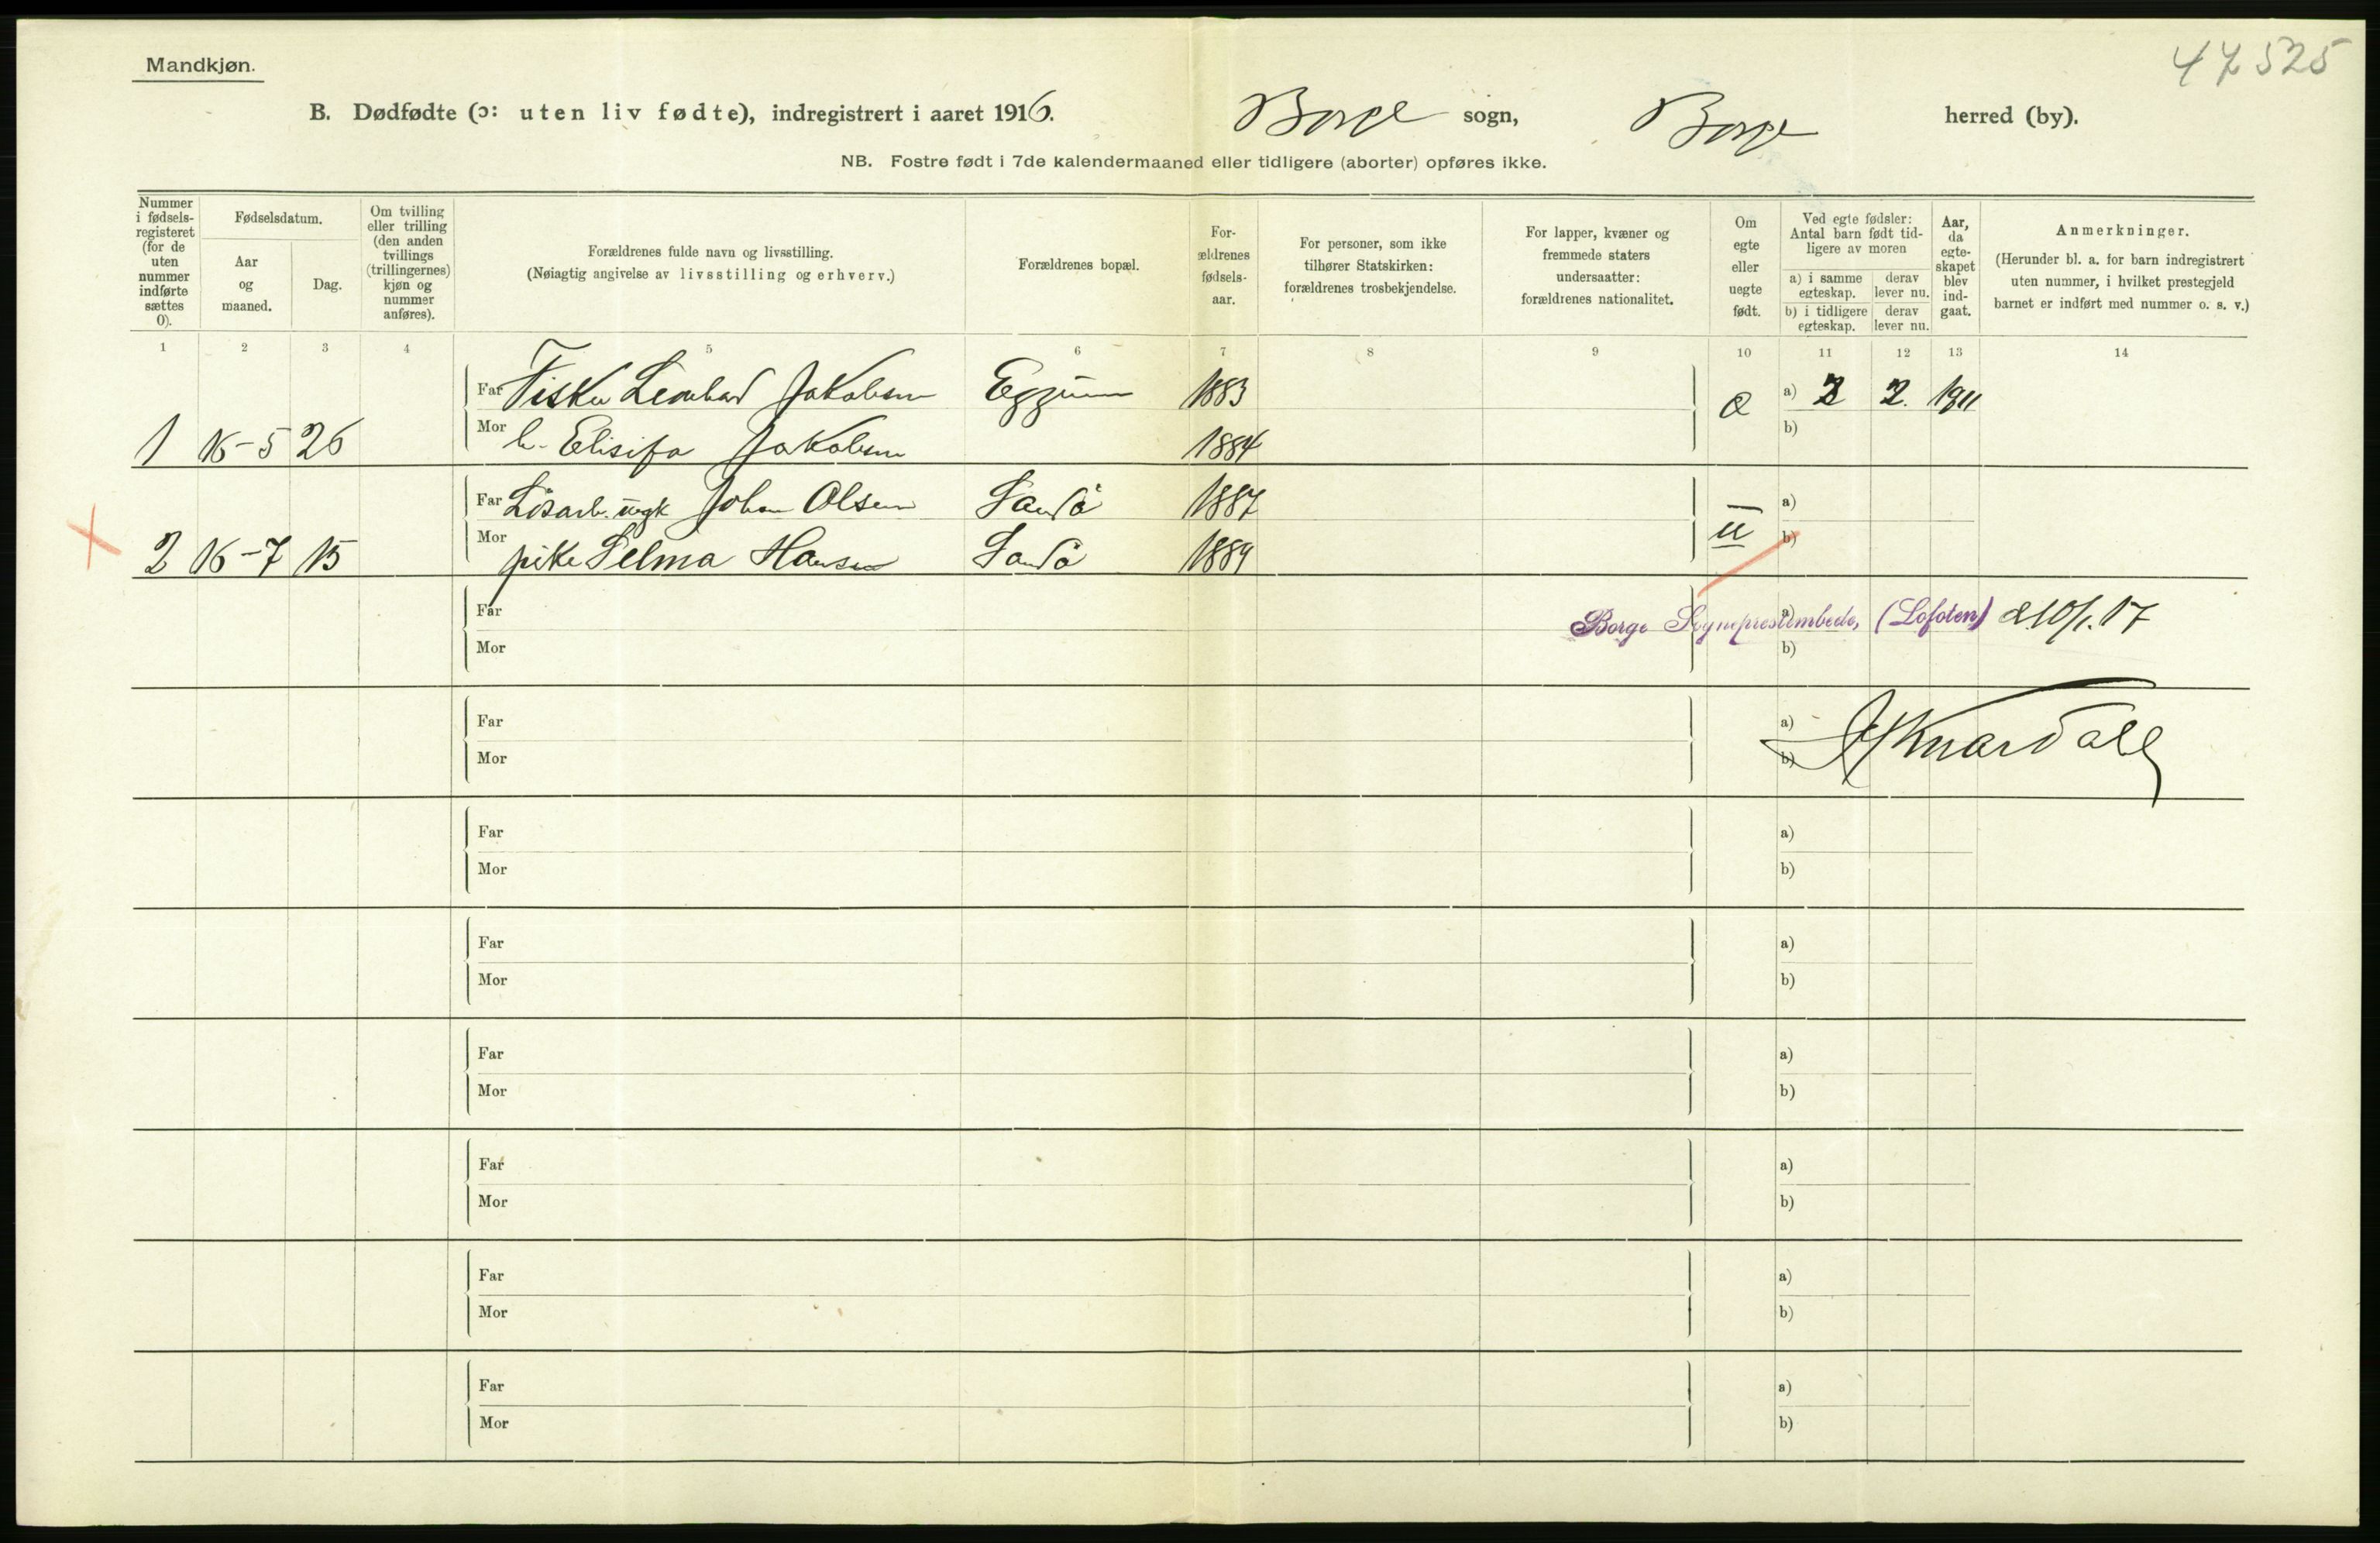 Mandkjøn.
47525
B. Dødfødte (ɔ: uten liv fødte), indregistrert i aaret 1916. Borge sogn, Borge herred (by).
NB. Fostre født i 7de kalendermaaned eller tidligere (aborter) opføres ikke.
Nummer
i fødsels-
registeret
(for de
uten
nummer
indførte
sættes
0).
Fødselsdatum.
Aar
og
maaned.
Dag.
Om tvilling
eller trilling
(den anden
tvillings
(trillingernes)
kjøn og
nummer
anføres).
Forældrenes fulde navn og livsstilling.
(Nøiagtig angivelse av livsstilling og erhverv.)
Forældrenes bopæl.
For-
ældrenes
fødsels-
aar.
For personer, som ikke
tilhører Statskirken:
forældrenes trosbekjendelse.
For lapper, kvæner og
fremmede staters
undersaatter:
forældrenes nationalitet.
Om
egte
eller
uegte
født.
Ved egte fødsler:
Antal barn født tid-
ligere av moren
a) i samme
egteskap.
derav
lever nu.
b) i tidligere
egteskap.
derav
lever nu.
Aar,
da
egte-
skapet
blev
ind-
gaat.
Anmerkninger.
(Herunder bl. a. for barn indregistrert
uten nummer, i hvilket prestegjeld
barnet er indført med nummer o. s. v.)
1 2 3 4 5 6 7 8 9 10 11 12 13 14
Far Fisker Lenhard Jakobsen Eggum 1883 a) 2 2. 1911
1 16-5 26 Mor h. Elisifa Jakobsen 1884 b)
Far Lösarb. ugk Johan Olsen Sandö 1887 a)
2 16-7 15 Mor pike Selma Hansen Sandö 1889 u b)
Far a)
Borge Sogneprestembede, (Lofoten) d 10/1.17
Mor b)
Far a)
J Knardahl
Mor b)
Far a)
Mor b)
Far a)
Mor b)
Far a)
Mor b)
Far a)
Mor b)
Far a)
Mor b)
Far a)
Mor b)